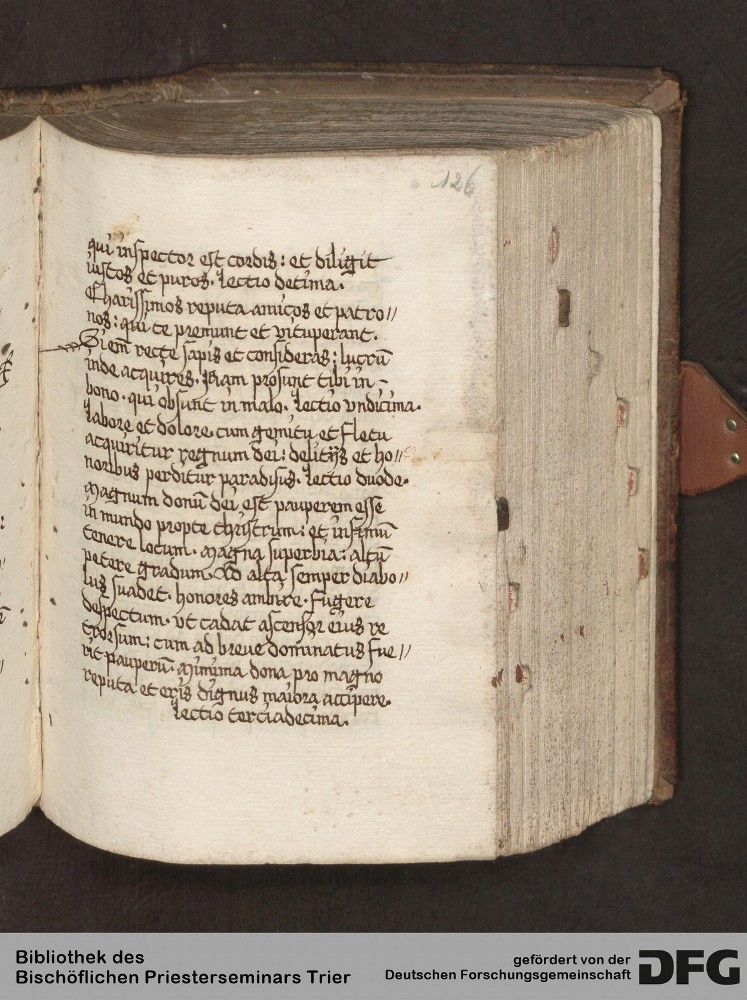 126
qui inspector est cordis: et diligit
iustos et puros. Lectio decima.
Charissimos reputa amicos et patro//
nos: qui te premunt et vituperant.
Si em̄ recte sapis et consideras: lucrū
inde acquires. Nam prosunt tibi in-
bono. qui obsunt in malo. Lectio vndicima.
Labore et dolore. cum gemitu et fletu
acquiritur regnum dei: delitijs et ho//
noribus perditur paradisus. Lectio duode.
Magnum donū dei est pauperem esse
in mundo propte christrum: et infimū
tenere locum. Magna superbia: altū
petere gradum. Ad alta semper diabo//
lus suadet. honores ambire. fugere
despectum. vt cadat ascensor eius re
trorsum: cum ad breue dominatus fue//
rit pauperū. Minima dona pro magno
reputa et eris dignus maiora accipere.
Lectio terciadecima.
Bibliothek des
Bischöflichen Priesterseminars Trier
gefördert von der
Deutschen Forschungsgemeinschaft
DFG